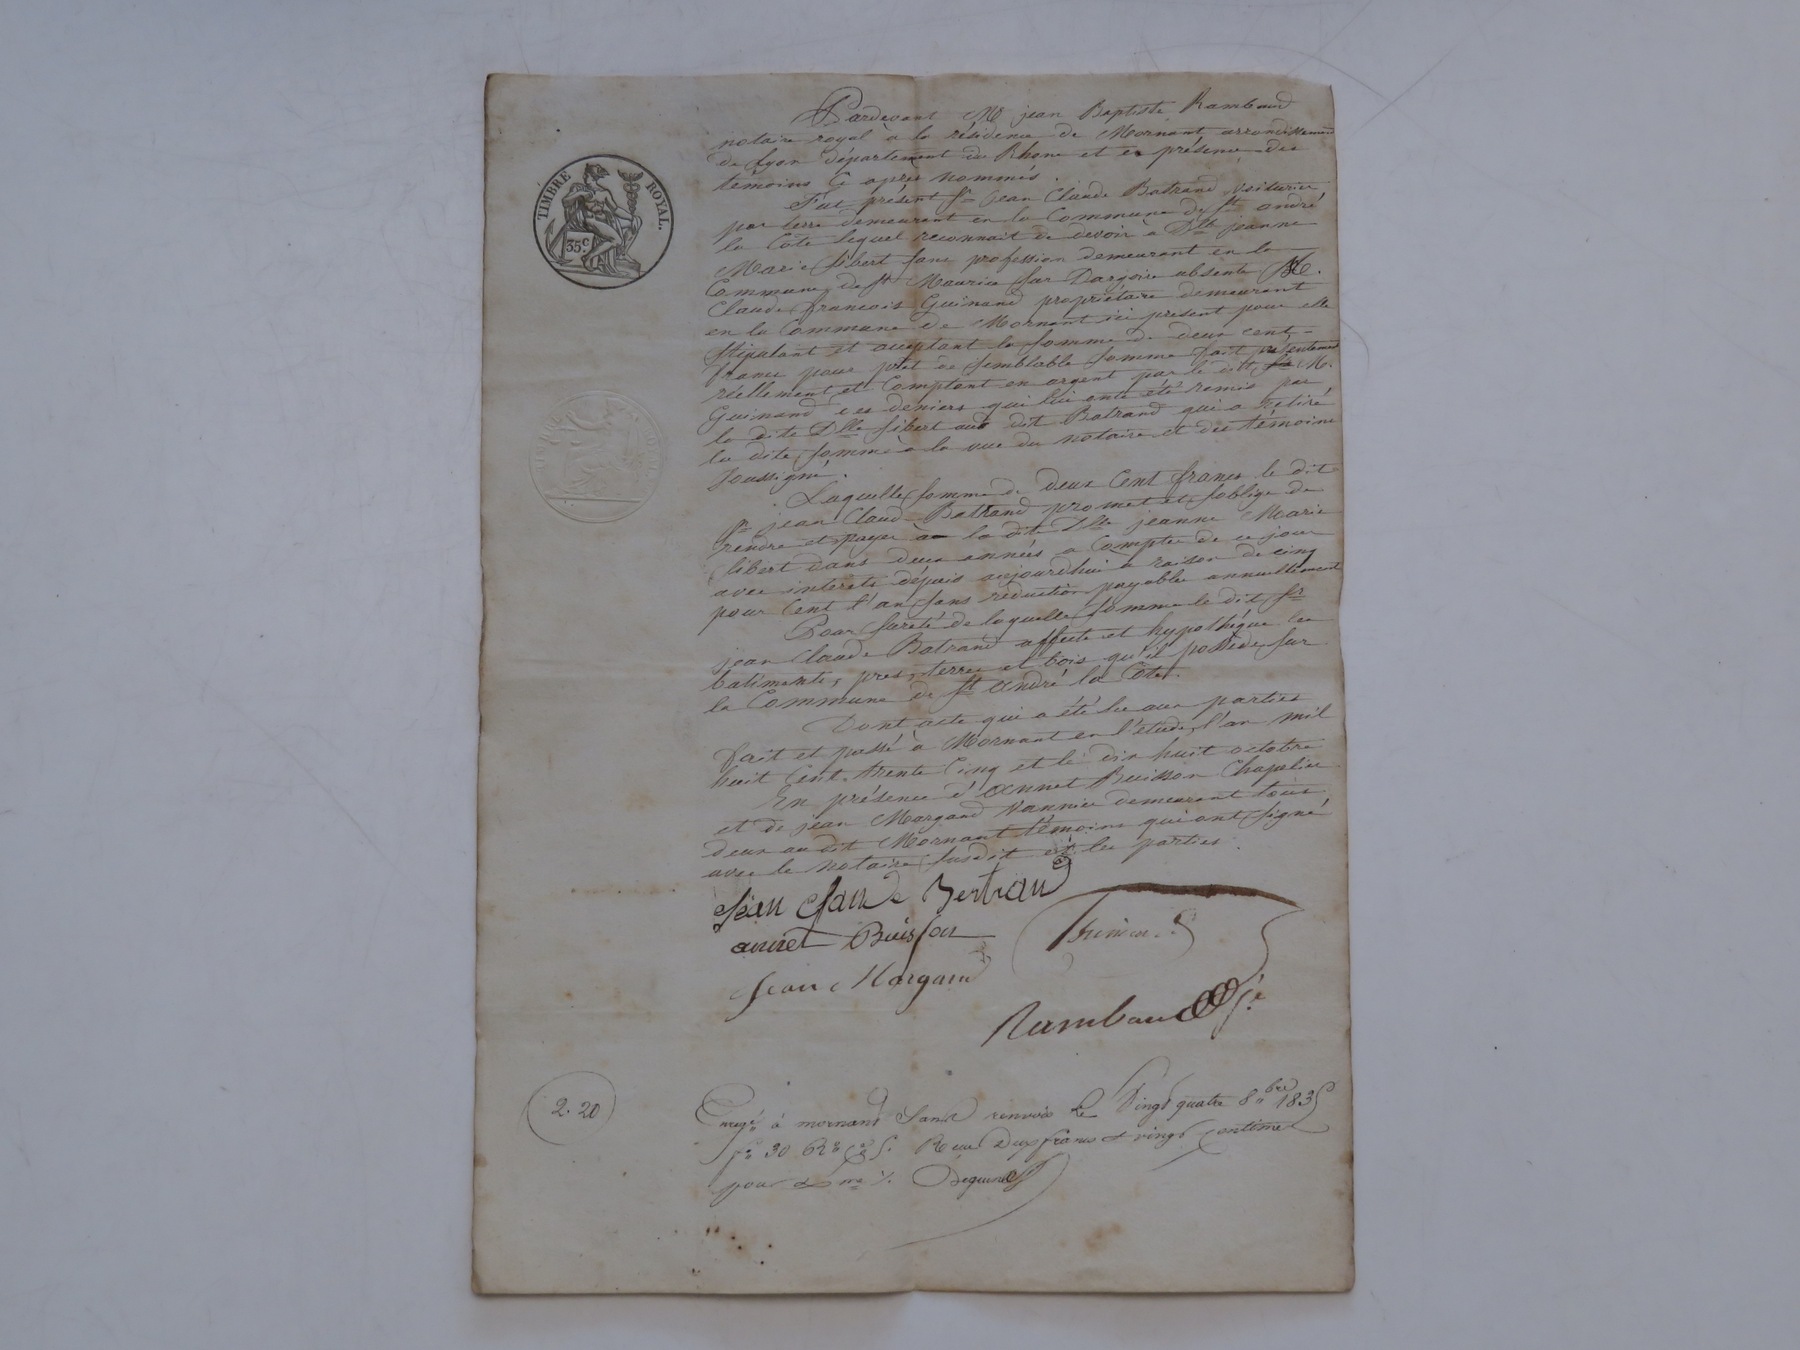 TIMBRE ROYAL.
35 c.
Pardevant Me jean Baptiste Rambaud
notaire royal à la résidence de Mornant, arrondissement
de Lyon département du Rhone et en présence des
témoins Ci après nommés.
Fut présent Sr jean Claude Batrand voiturier
par terre demeurant en la Commune de St andré
la Côte lequel reconnait de devoir à Dlle jeanne
Marie Sibert sans profession demeurant en la
Commune de St Maurice sur Dargoire absente Me.
Claude françois Guinand propriétaire demeurant
en la Commune de Mornant ici présent pour elle
stipulant et acceptant la somme de deux cent
francs pour prêt de semblable somme fait présentement
réellement et Comptant en argent par le dit M.
Guinand des deniers qui lui ont été remis par
la dite Dlle Sibert aud dit Batrand qui a retiré
la dite somme à la vue du notaire et des témoins
soussigné.
Laquelle somme de deux Cent francs le dit
Sr jean Claude Batrand promet et s'oblige de
rendre et payer à la dite Dlle jeanne Marie
Sibert dans deux années a Compter de ce jour
avec intérêts dépuis aujourdhui à raison de cinq
pour Cent l'an sans réduction payable annuellement
Pour sureté de laquelle somme le dit Sr
jean Claude Batrand affecte et hypothéque les
batiments, prés, terres et bois qu'il possède sur
la Commune de St andré la Côte.
Dont acte qui a été lu aux parties
fait et passé à Mornant en l'étude, l'an mil
huit Cent trente Cinq et le dix huit octobre
En présence d'annet Buisson Chapelier
et de jean Margand Vannier demeurant tous
deux au dit Mornant témoins qui ont signé
avec le notaire susdit et les parties.
Jean Claude Bertrand
annet Buisson
Guinand
Jean Margand
Rambaud
2. 20
Enregé à mornant sans renvois le Vingt quatre 8bre 1835
fo 30 Ro Reçu Deux francs & vingt centimes
pour